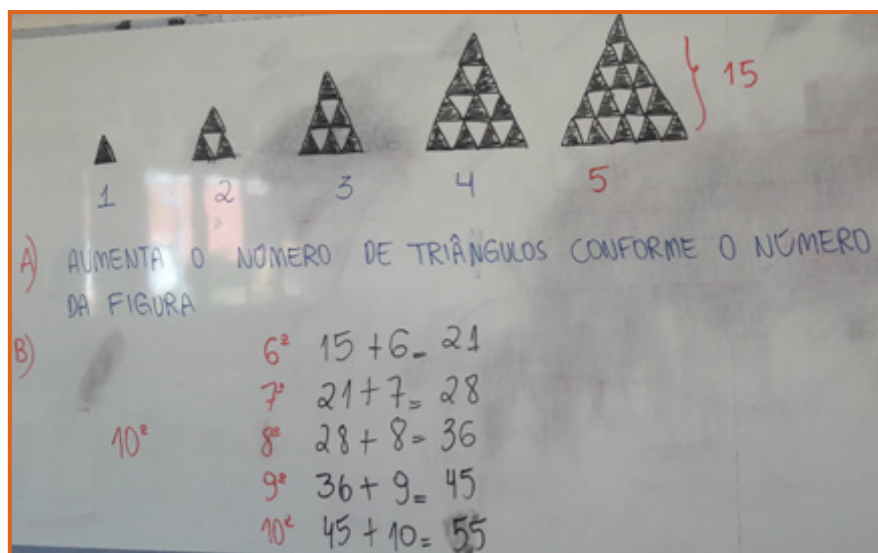 15
1 2 3 4 5
A) AUMENTA O NÚMERO DE TRIÂNGULOS CONFORME O NÚMERO
DA FIGURA
B)
6ª 15 + 6 = 21
7ª 21 + 7 = 28
10ª 8ª 28 + 8 = 36
9ª 36 + 9 = 45
10ª 45 + 10 = 55